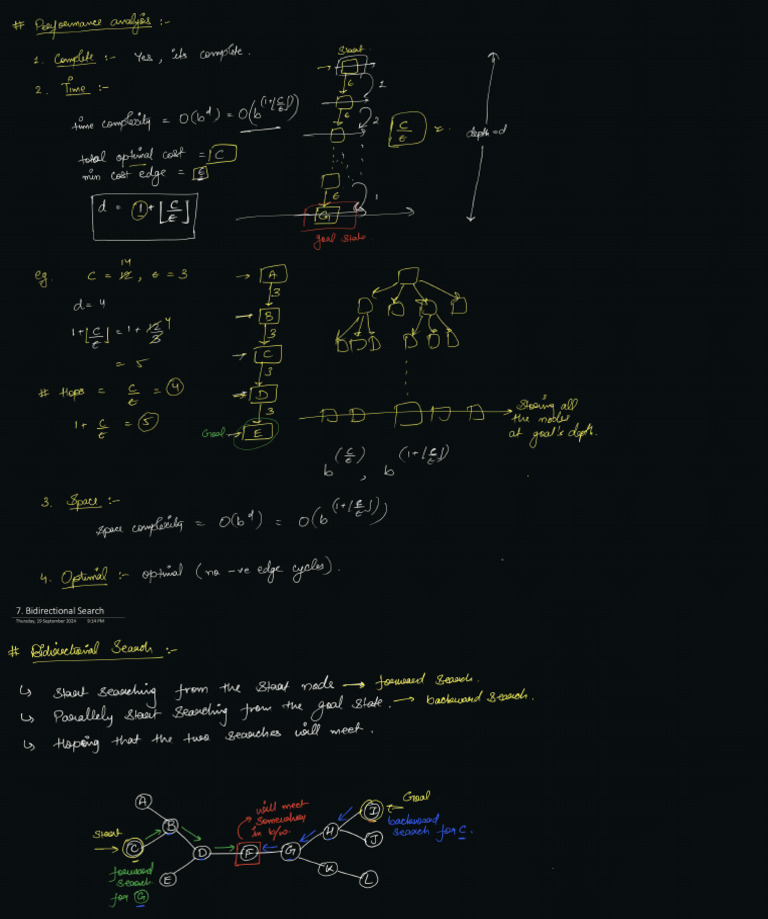 # Performance analysis :-
1. Complete :- Yes, its complete.
2. Time :-
time complexity = O(b^d) = O(b^(1+⌊C/ε⌋))
total optimal cost = C
min cost edge = ε
d = 1 + ⌊C/ε⌋
Start
ε
1
ε
2
C/ε
depth = d
ε
1
G
goal state
eg. C = 12 14, ε = 3
d = 4
1+⌊C/ε⌋ = 1 + 12/3 4
= 5
# Hops = C/ε = 4
1 + C/ε = 5
A
3
B
3
C
3
D
3
Goal → E
Storing all
the nodes
at goal's depth.
b^(C/ε) , b^(1+⌊C/ε⌋)
3. Space :-
Space complexity = O(b^d) = O(b^(1+⌊C/ε⌋))
4. Optimal :- optimal (no -ve edge cycles).
7. Bidirectional Search
Thursday, 19 September 2024 9:14 PM
# Bidirectional Search :-
↳ Start searching from the start node → forward search.
↳ Parallely start searching from the goal state. → backward search.
↳ Hoping that the two searches will meet.
A
B
Start
C
D
E
forward
search
for G
will meet
somewhere
in b/w.
F
G
H
I
J
K
L
Goal
backward
search for C.